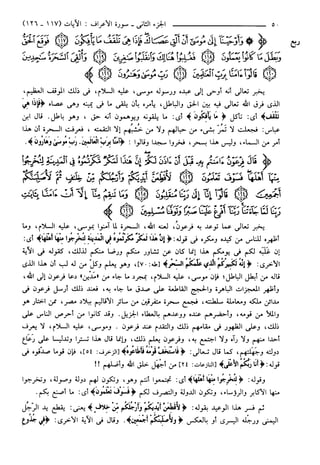 ٥٠
الجزء الثاني - سورة الأعراف : الآيات (١١٧ - ١٢٦)
ربع
﴿ وَأَوْحَيْنَا إِلَى مُوسَى أَنْ أَلْقِ عَصَاكَ فَإِذَا هِيَ تَلْقَفُ مَا يَأْفِكُونَ ﴿١١٧﴾ فَوَقَعَ الْحَقُّ
وَأُلْقِيَ السَّحَرَةُ
رَبِّ مُوسَى وَهَارُونَ
يخبر تعالى أنه أوحى إلى عبده ورسوله موسى، عليه السلام، في ذلك الموقف العظيم،
الذي فرق الله تعالى فيه بين الحق والباطل، يأمره بأن يلقي ما في يمينه وهي عصاه ﴿فَإِذَا هِيَ
تَلْقَفُ﴾ أي: تأكل ﴿مَا يَأْفِكُونَ﴾ أي: ما يلقونه ويوهمون أنه حق ، وهو باطل. قال ابن
عباس: فجعلت لا تَمُرّ بشيء من حبالهم ولا من خشبهم إلا التقمته ، فعرفت السحرة أن هذا
أمر من السماء، وليس هذا بسحر، فخروا سجدا وقالوا : ﴿آمَنَّا بِرَبِّ الْعَالَمِينَ. رَبِّ مُوسَى وَهَارُونَ﴾.
﴿ قَالَ فِرْعَوْنُ آمَنْتُمْ بِهِ قَبْلَ أَنْ آذَنَ لَكُمْ إِنَّ هَذَا لَمَكْرٌ مَكَرْتُمُوهُ فِي الْمَدِينَةِ لِتُخْرِجُوا
مِنْهَا أَهْلَهَا فَسَوْفَ تَعْلَمُونَ
أَجْمَعِينَ
يخبر تعالى عما توعد به فرعونُ، لعنه الله، السحرة لما آمنوا بموسى، عليه السلام، وما
أظهره للناس من كيده ومكره في قوله: ﴿إِنَّ هَذَا لَمَكْرٌ مَكَرْتُمُوهُ فِي الْمَدِينَةِ لِتُخْرِجُوا مِنْهَا أَهْلَهَا﴾ أي:
إن غَلَبَه لكم في يومكم هذا إنما كان عن تشاور منكم ورضا منكم لذلك، كقوله في الآية
الأخرى: ﴿إِنَّهُ لَكَبِيرُكُمُ الَّذِي عَلَّمَكُمُ السِّحْرَ﴾ [طه: ٧٠]، وهو يعلم وكلّ من له لب أن هذا الذي
قاله من أبطل الباطل؛ فإن موسى، عليه السلام، بمجرد ما جاء من «مدين» دعا فرعون إلى الله،
وأظهر المعجزات الباهرة والحجج القاطعة على صدق ما جاء به، فعند ذلك أرسل فرعون في
مدائن ملكه ومعاملة سلطنته، فجمع سحرة متفرقين من سائر الأقاليم ببلاد مصر، ممن اختار هو
والملأ من قومه، وأحضرهم عنده ووعدهم بالعطاء الجزيل. وقد كانوا من أحرص الناس على
ذلك، وعلى الظهور في مقامهم ذلك والتقدم عند فرعون . وموسى، عليه السلام، لا يعرف
أحدا منهم ولا رآه ولا اجتمع به، وفرعون يعلم ذلك، وإنما قال هذا تسترا وتدليسا على رَعَاع
دولته وجَهَلتهم، كما قال تعالى: ﴿فَاسْتَخَفَّ قَوْمَهُ فَأَطَاعُوهُ﴾ [الزخرف: ٥٤]، فإن قوما صدقوه في
قوله: ﴿أَنَا رَبُّكُمُ الأَعْلَى﴾ [النازعات: ٢٤] من أجهل خلق الله وأضلهم !!
وقوله: ﴿لِتُخْرِجُوا مِنْهَا أَهْلَهَا﴾ أي: تجتمعوا أنتم وهو، وتكون لهم دولة وصولة، وتخرجوا
منها الأكابر والرؤساء، وتكون الدولة والتصرف لكم ﴿فَسَوْفَ تَعْلَمُونَ﴾ أي: ما أصنع بكم.
ثم فسر هذا الوعيد بقوله: ﴿لأُقَطِّعَنَّ أَيْدِيَكُمْ وَأَرْجُلَكُمْ مِنْ خِلافٍ﴾ يعنى: يقطع يد الرجُل
اليمنى ورجْله اليسرى أو بالعكس ﴿ثُمَّ لأُصَلِّبَنَّكُمْ أَجْمَعِينَ﴾. وقال في الآية الأخرى: ﴿فِي جُذُوعِ